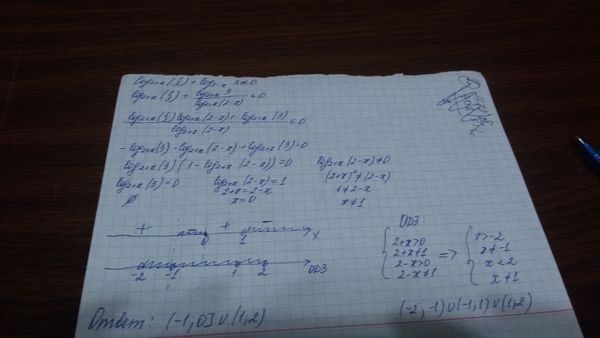 log₂₊ₓ(1/3) + log₂₋ₓ 3 ≤ 0
log₂₊ₓ(1/3) + log₂₊ₓ 3 / log₂₊ₓ(2-x) ≤ 0
log₂₊ₓ(1/3) log₂₊ₓ(2-x) + log₂₊ₓ(3) / log₂₊ₓ(2-x) ≤ 0
-log₂₊ₓ(3) · log₂₊ₓ(2-x) + log₂₊ₓ(3) = 0
log₂₊ₓ(3) (1 - log₂₊ₓ(2-x)) = 0 log₂₊ₓ(2-x) ≠ 0
log₂₊ₓ(3) = 0 log₂₊ₓ(2-x) = 1 (2+x)⁰ ≠ (2-x)
∅ 2+x = 2-x 1 ≠ 2-x
x = 0 x ≠ 1
+ - + -
0 1 x
-2 -1 1 2 ОДЗ
ОДЗ:
2+x>0 => x>-2
2+x≠1 x≠-1
2-x>0 x<2
2-x≠1 x≠1
(-2, -1)∪(-1,1)∪(1,2)
Ответ: (-1; 0]∪(1,2)